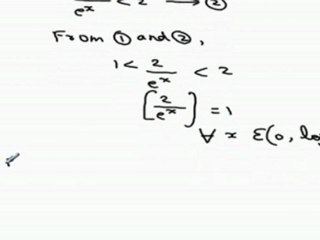 /e^x < 2 → ②
From ① and ②,
1 < 2/e^x < 2
[2/e^x] = 1
∀ x ε(0, lo